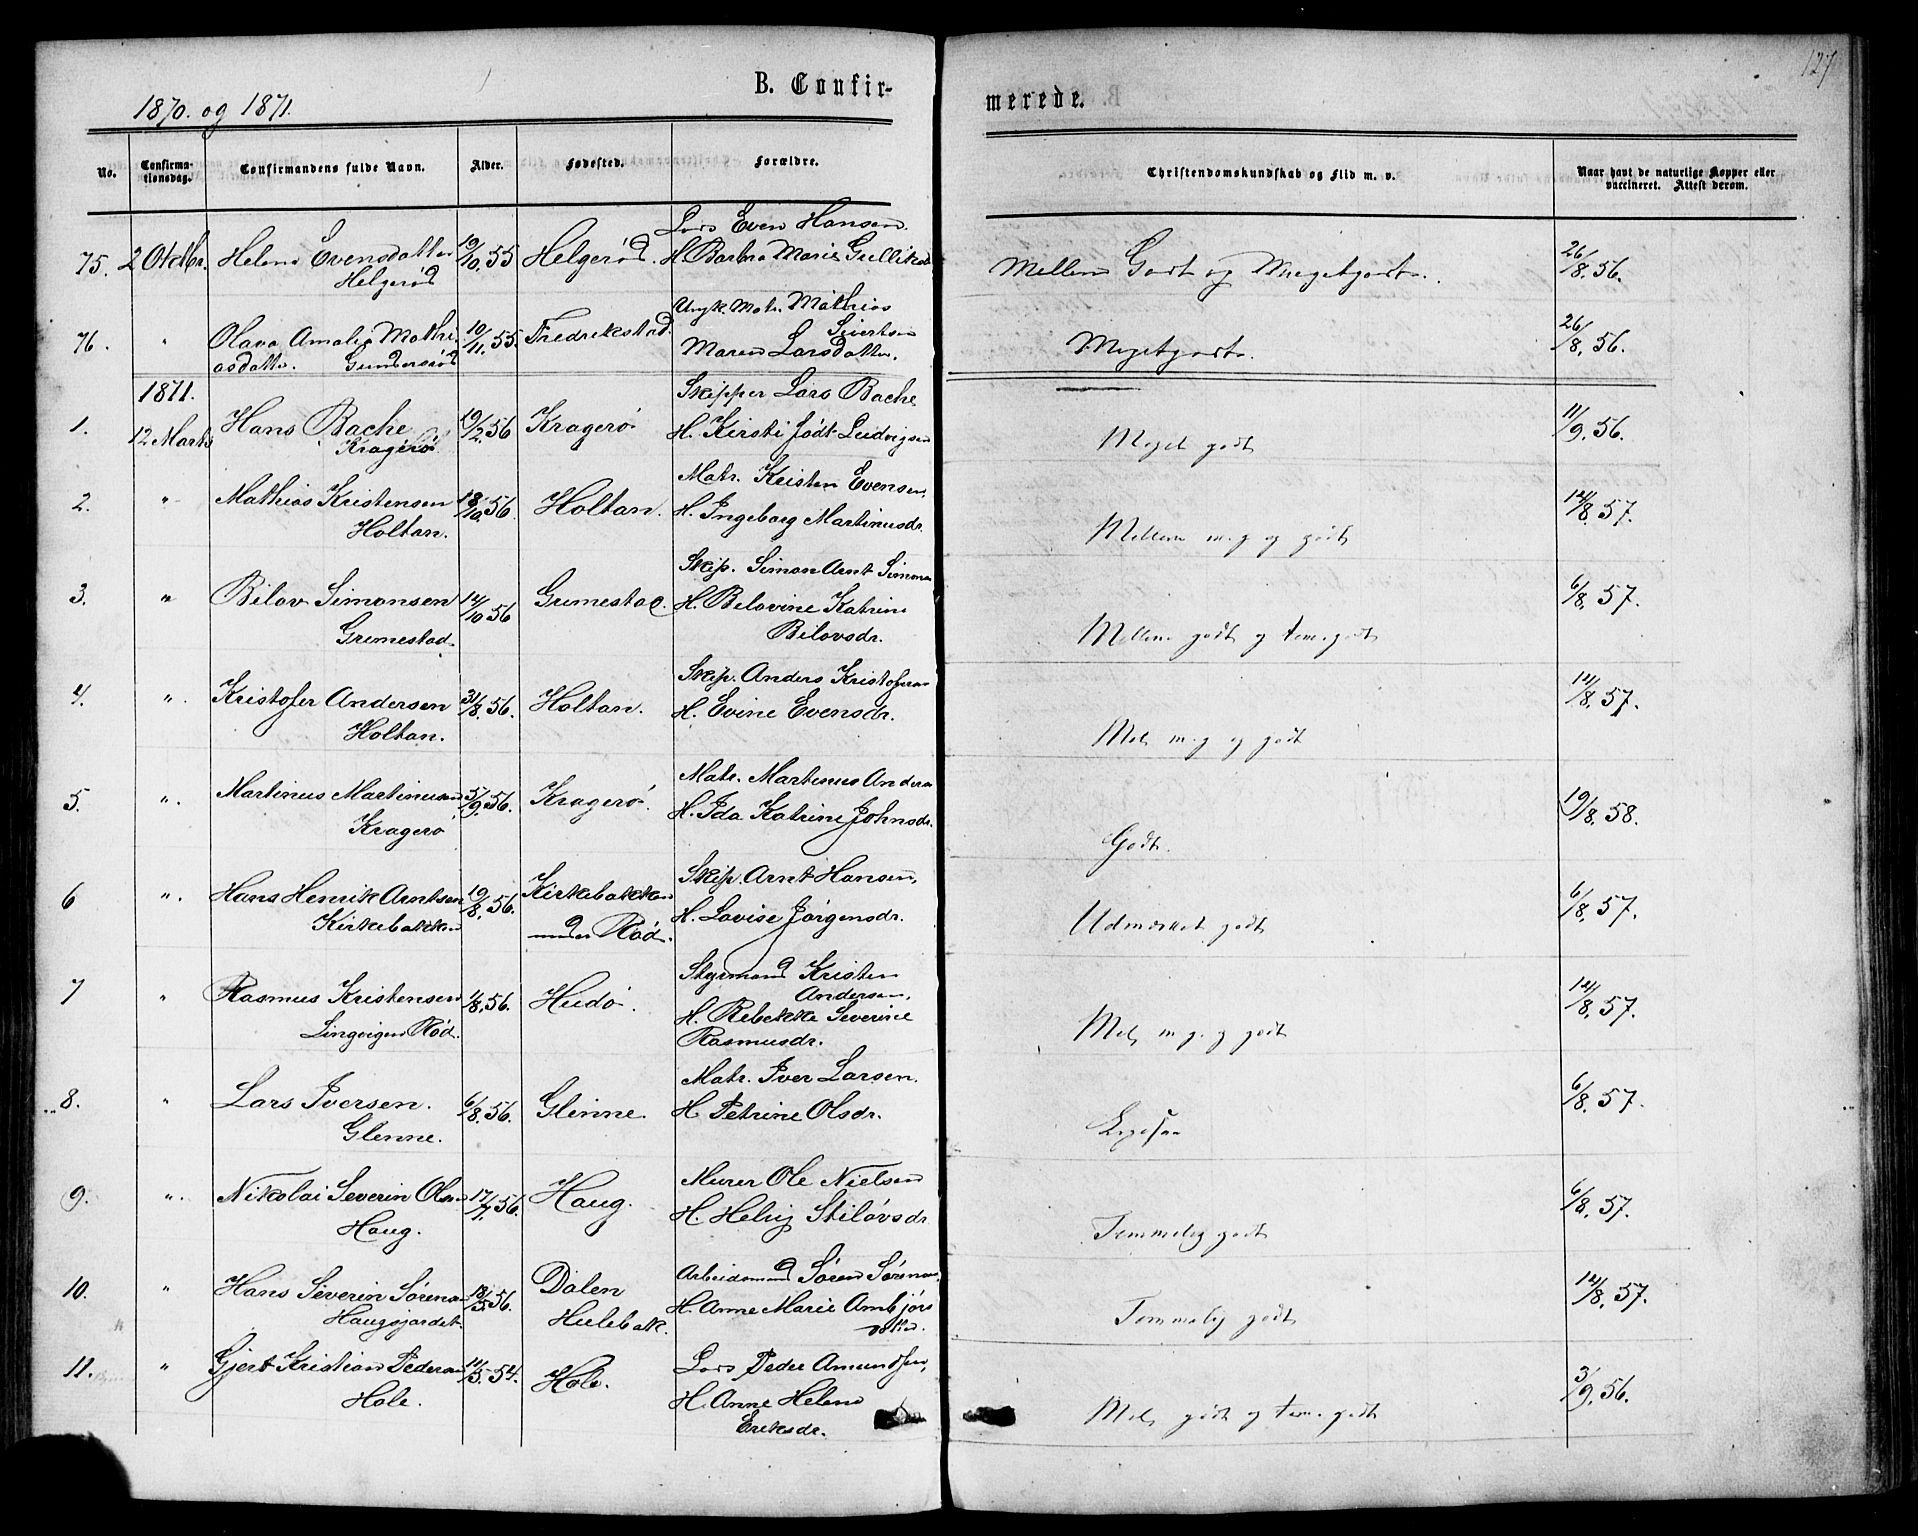 127
1870. og 1871.
B. Confir-
merede.
No.
Confirma-
tionsdag.
Confirmandens fulde Navn.
Alder.
Fødested.
Forældre.
Christendomskundskab og Flid m. v.
Naar havt de naturlige Kopper eller
vaccineret. Attest derom.
Lods Even Hansen.
75. 2 Oktbr. Helena Evensdatter 19/10. 55 Helgerød. H. Barbra Marie Gulliksd Mellem Godt og Megetgodt. 26/8. 56.
Helgerød
Ungk. Matr. Mathias
76. " Olava Amalie Mathi 10/11. 55. Fredrikstad. Siertsen Megetgodt. 26/8. 56.
asdatter. Gundersrød Maren Larsdatter.
1871. Skipper Lars Bache
1. 12 Marts Hans Bache 19/2. 56 Kragerø H. Kirsti født Ludvigsen Meget godt 11/9. 56.
Kragerø
Matr. Kristen Evensen,
2. " Mathias Kristensen 18/10. 56. Holtan. H. Ingeborg Martinusdr. Mellem m. g og godt 14/8. 57.
Holtan.
Skip. Simon Arnt Simons
3. " Bilov Simonsen 14/10 56 Grimestad. H. Belovine Katrine Mellem godt og tem. godt 6/8. 57.
Grimestad. Bilovsdr.
Skip. Anders Kristofersen
4. " Kristofer Andersen 31/8. 56. Holtan. H. Evine Evensdr. Mel, m. g og godt 14/8. 57.
Holtan.
Matr. Martinus Anders
5. " Martinus Martinusen 5/9. 56. Kragerø. H. Ida Katrine Johnsdr. Godt. 19/8. 58.
Kragerø
Skip. Arnt Hansen,
6 " Hans Henrik Arntsen 19/8. 56. Kirkebakken H. Lovise Jørgensdr. Udmærket godt 6/8. 57.
Kirkebakken under Rød.
Styrmand Kristen
Andersen,
7 " Rasmus Kristensen 1/8. 56. Hudø. H. Rebekke Severine Mel, m. g. og godt 14/8. 57.
Lingvigen Rød. Rasmusdr.
Matr. Iver Larsen.
8. " Lars Iversen. 6/8. 56. Glenne. H Petrine Olsdr. Ligesaa 6/8. 57.
Glenne.
Murer Ole Nielsen
9. " Nikolai Severin Olsen 17/7. 56. Haug. H. Helvig Stilovsdr Temmelig godt 6/8. 57.
Haug.
Arbeidsmand Søren Sørensen,
10. " Hans Severin Sørensen 18/5. 56. Dalen H. Anne Marie Ambjørs Temmelig godt 14/8. 57.
Haugsjordet. Hulebak. datter.
11. " Gjert Kristian Pedersen 11/5. 54. Hole. Lods Peder Amundsen, Mel, godt og tem. godt 3/9. 56.
Hole. H. Anne Helene
Eriksdr.